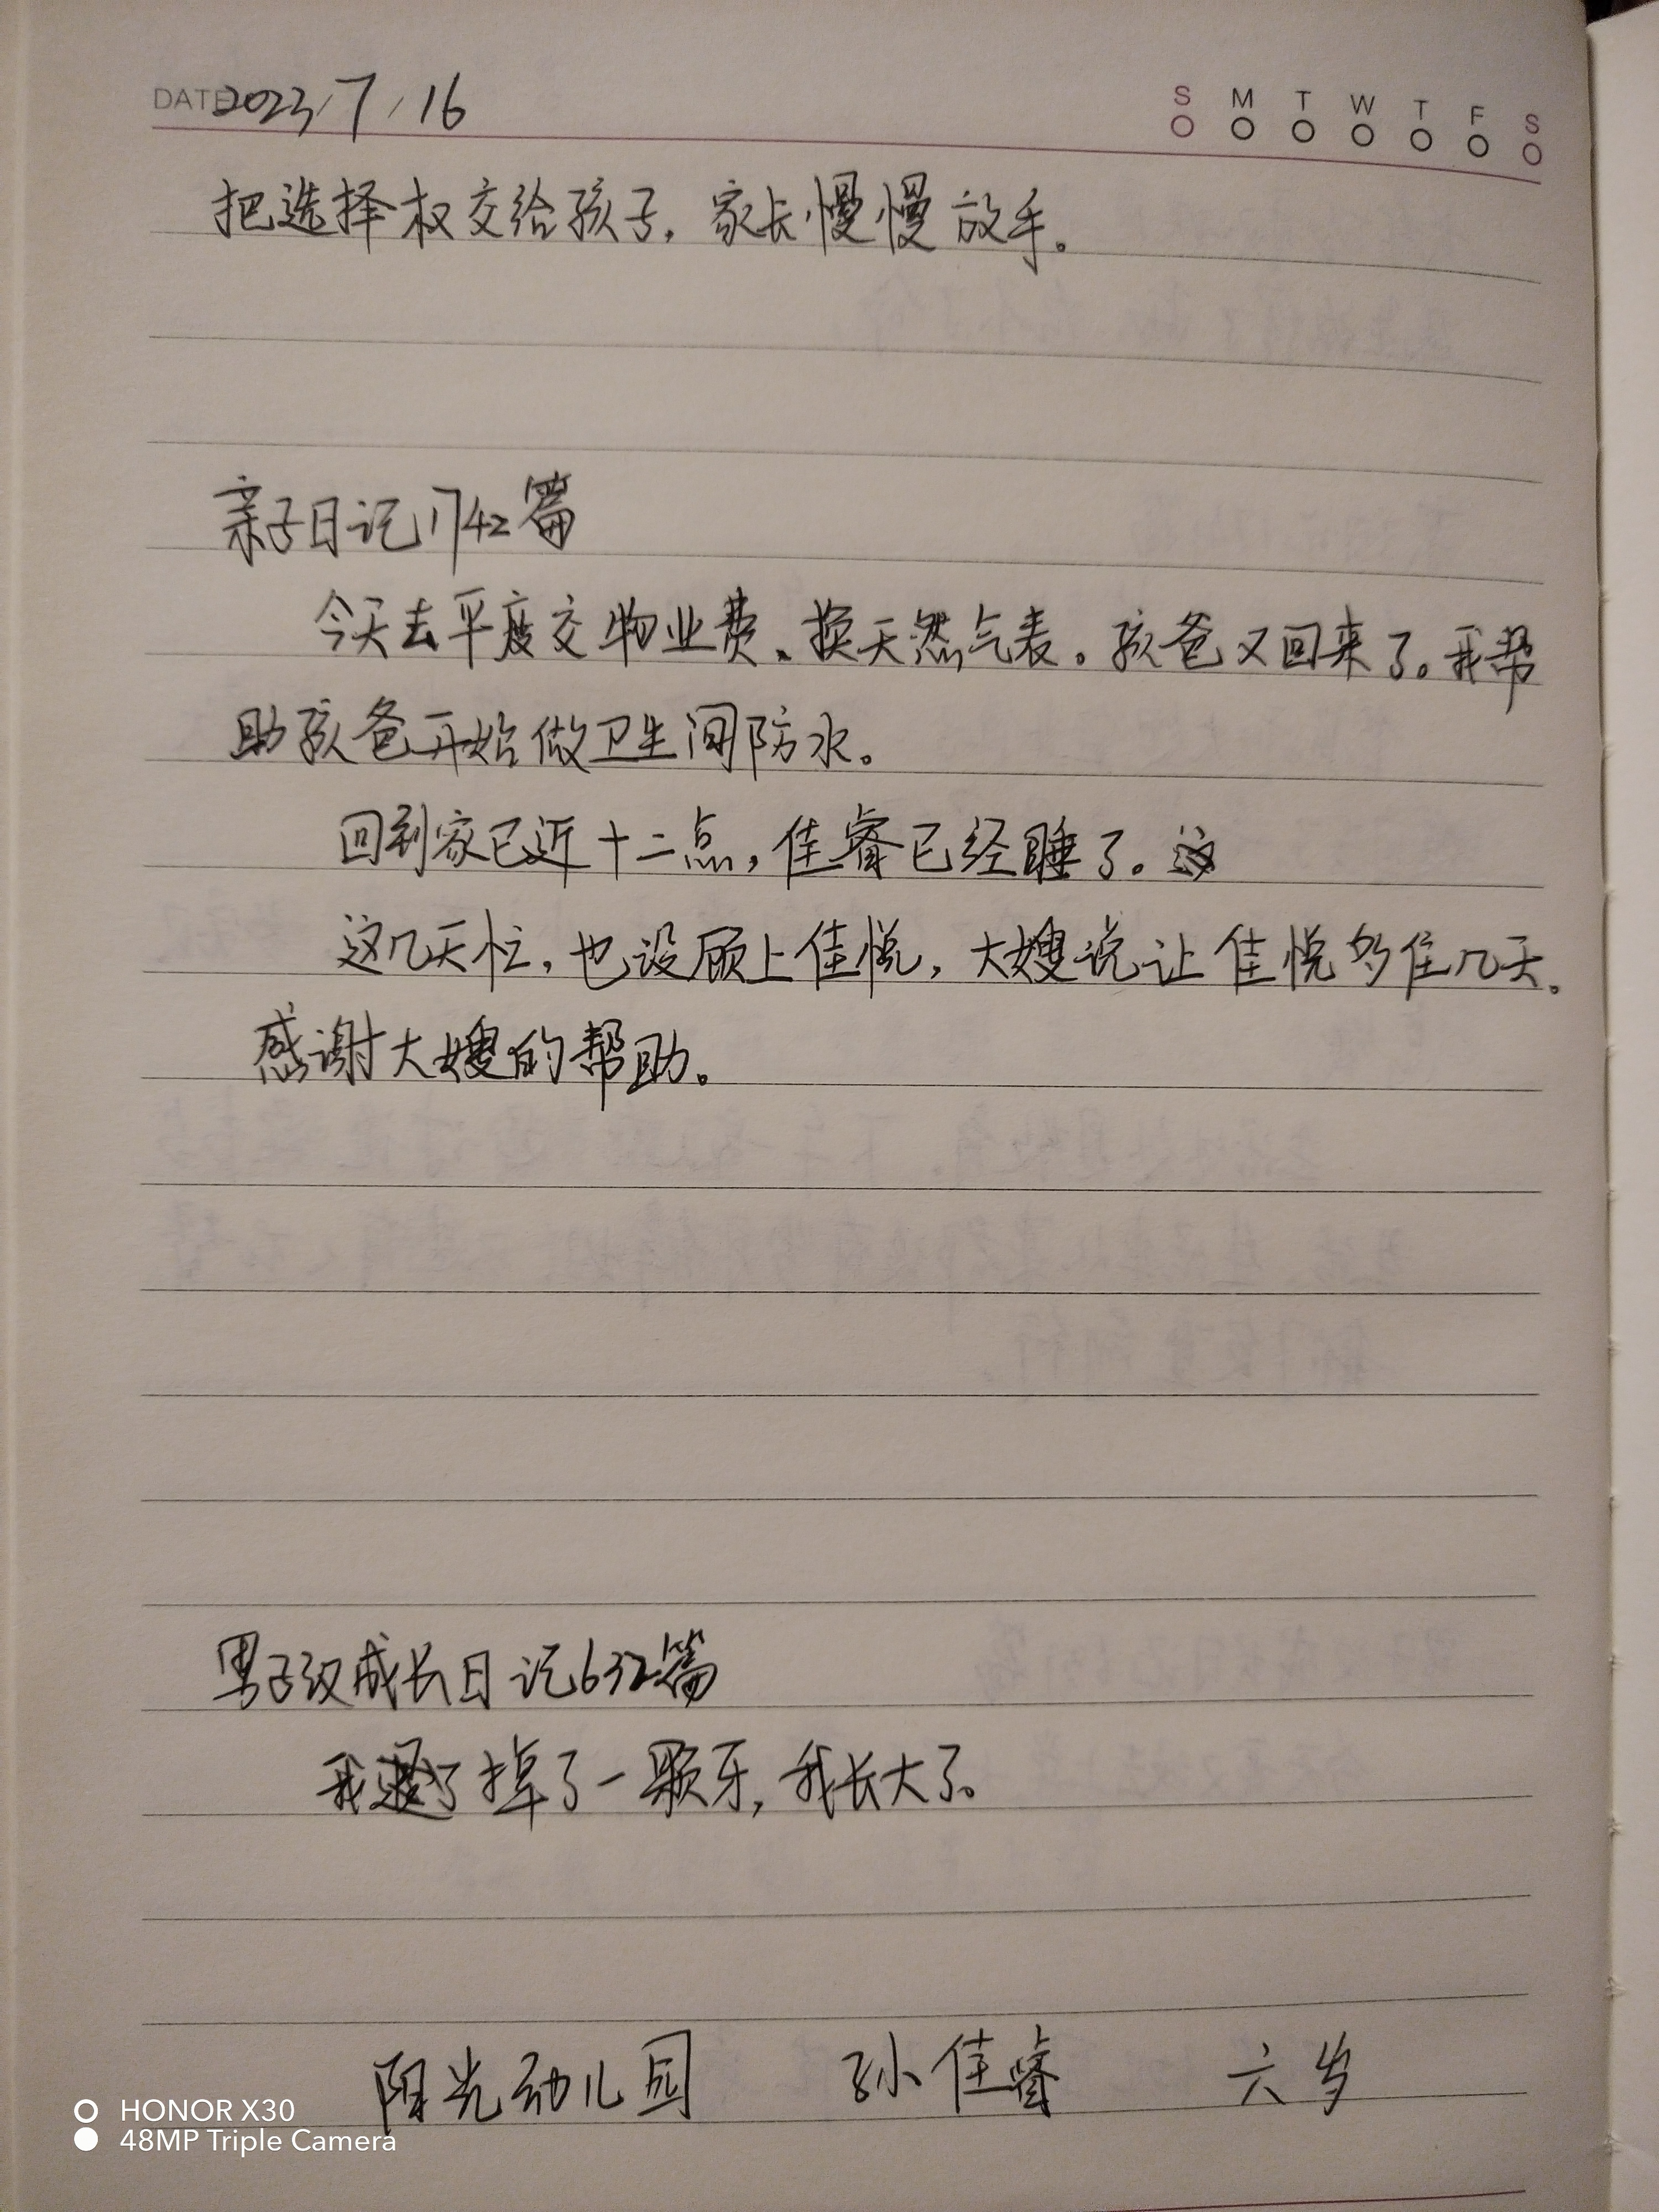 DATE 2023/7/16
S M T W T F S
把选择权交给孩子，家长慢慢放手。
亲子日记1742篇
今天去平度交物业费、换天然气表。孩爸又回来了。我帮
助孩爸开始做卫生间防水。
回到家已近十二点，佳睿已经睡了。
这几天忙，也没顾上佳悦，大嫂说让佳悦多住几天。
感谢大嫂的帮助。
男子汉成长日记632篇
我掉了一颗牙，我长大了。
阳光幼儿园 孙佳睿 六岁
HONOR X30
48MP Triple Camera